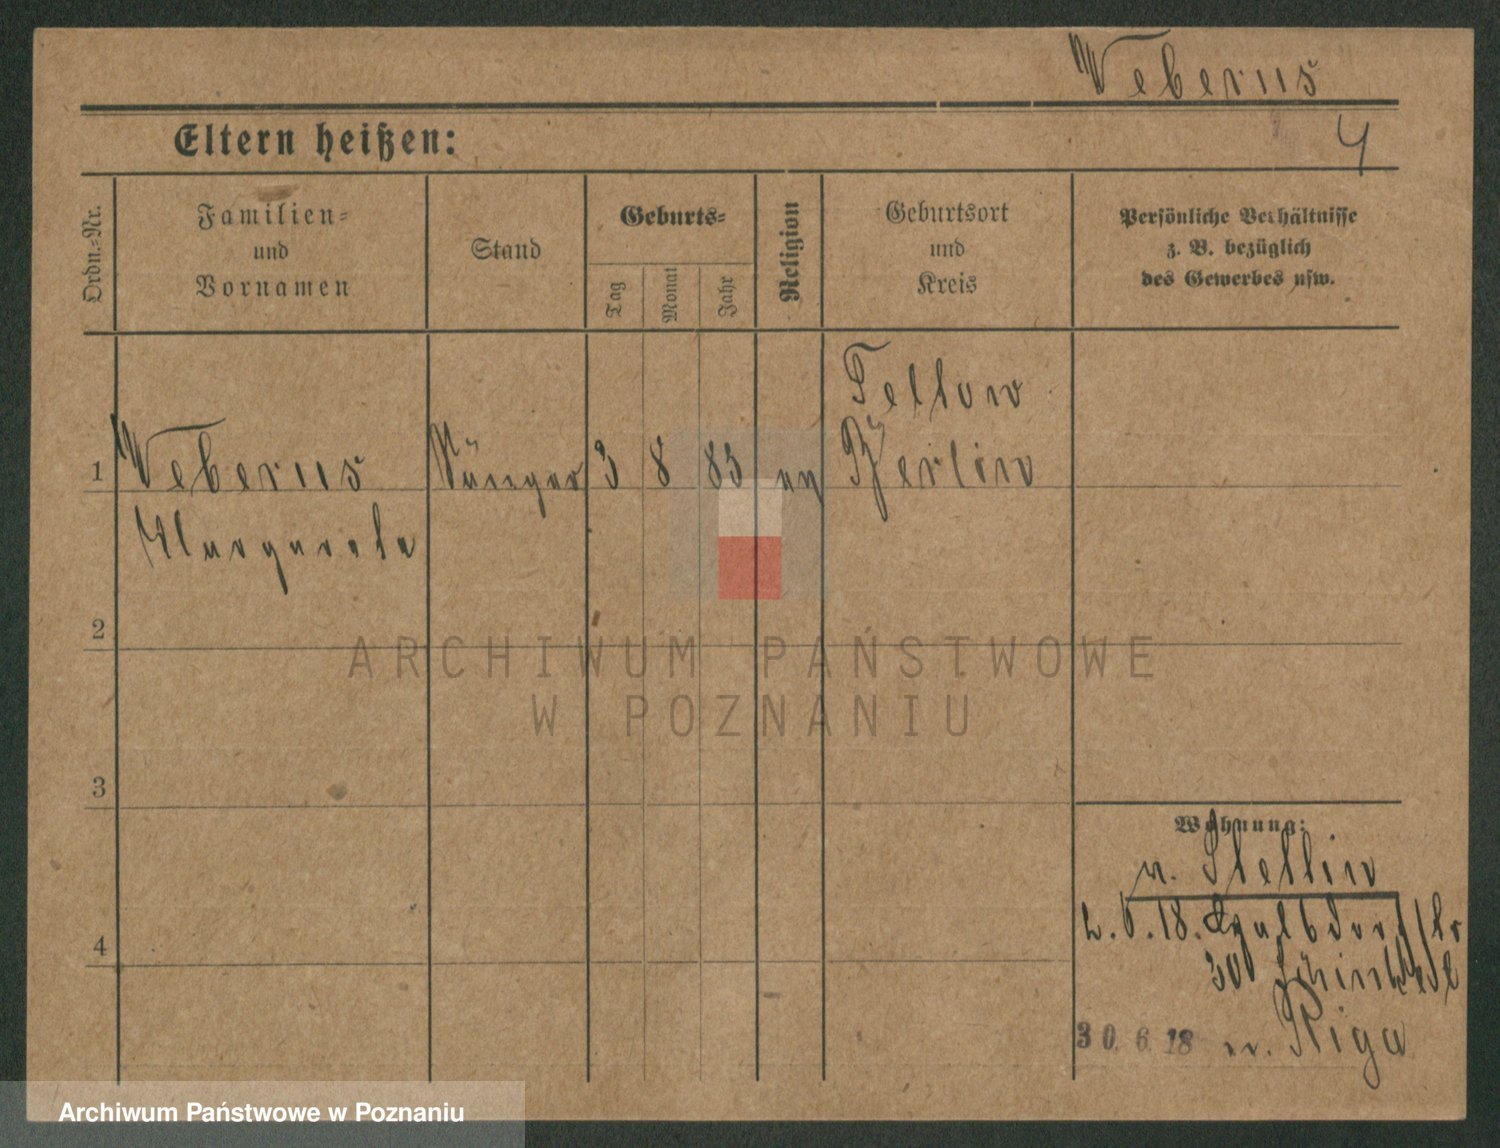 Weberus
Eltern heißen:
4
Ordn.-Nr.
Familien-
und
Vornamen
Stand
Geburts-
Tag
Monat
Jahr
Religion
Geburtsort
und
Kreis
Persönliche Verhältnisse
z. B. bezüglich
des Gewerbes usw.
Teltow
1 Weberus Sänger 3 8 83 ev Berlin
Margarete
2
ARCHIWUM PAŃSTWOWE
W POZNANIU
3
Wohnung:
n. Stettin
4
2. 6. 18.
30
30. 6. 18 n. Riga
Archiwum Państwowe w Poznaniu